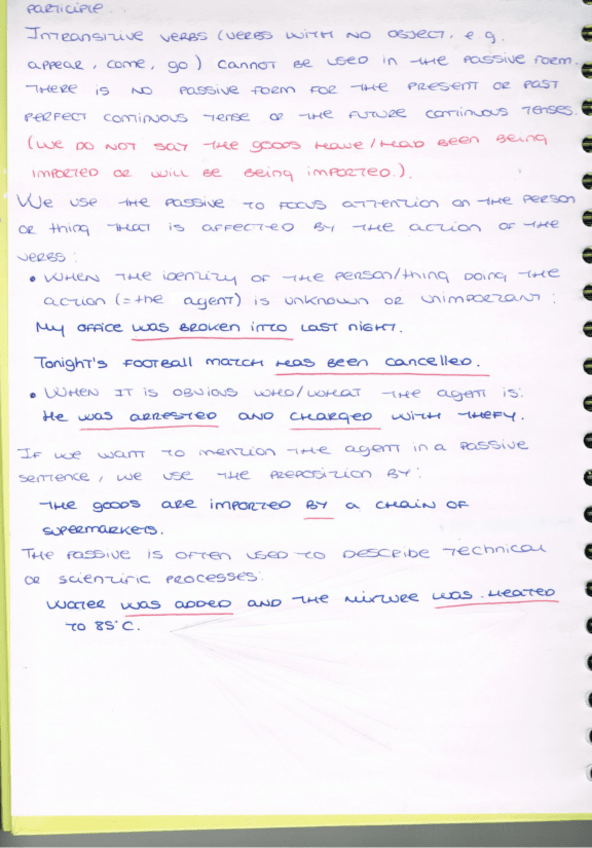 participle
Intransitive verbs (verbs with no object, e.g.
appear, come, go) cannot be used in the passive form.
There is no passive form for the present or past
perfect continuous tense or the future continuous tenses.
(We do not say the goods have/had been being
imported or will be being imported.).
We use the passive to focus attention on the person
or thing that is affected by the action of the
verbs:
• When the identity of the person/thing doing the
action (= the agent) is unknown or unimportant:
My office was broken into last night.
Tonight's football match has been cancelled.
• When it is obvious who/what the agent is:
He was arrested and charged with thefy.
If we want to mention the agent in a passive
sentence, we use the preposition by:
The goods are imported by a chain of
supermarkets.
The passive is often used to describe technical
or scientific processes:
Water was added and the mixture was heated
to 85°C.